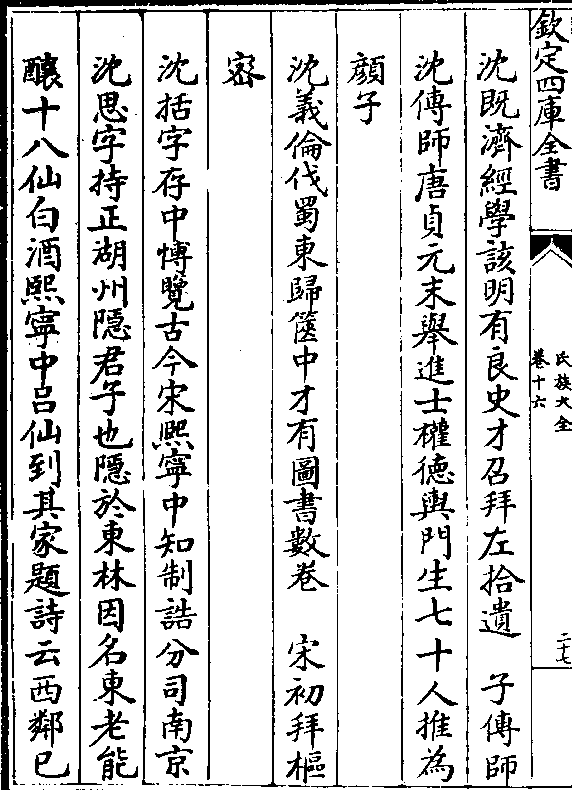 欽定四庫全書
氏族大全
卷十六
二十七
沈既濟經學該明有良史才召拜左拾遺　子傳師
沈傳師唐貞元末舉進士權德輿門生七十人推為
顔子
沈義倫伐蜀東歸篋中才有圖書數卷　宋初拜樞
宻
沈括字存中博覽古今宋熙寧中知制誥分司南京
沈思字持正湖州隱君子也隱於東林因名東老能
釀十八仙白酒熙寧中呂仙到其家題詩云西鄰已